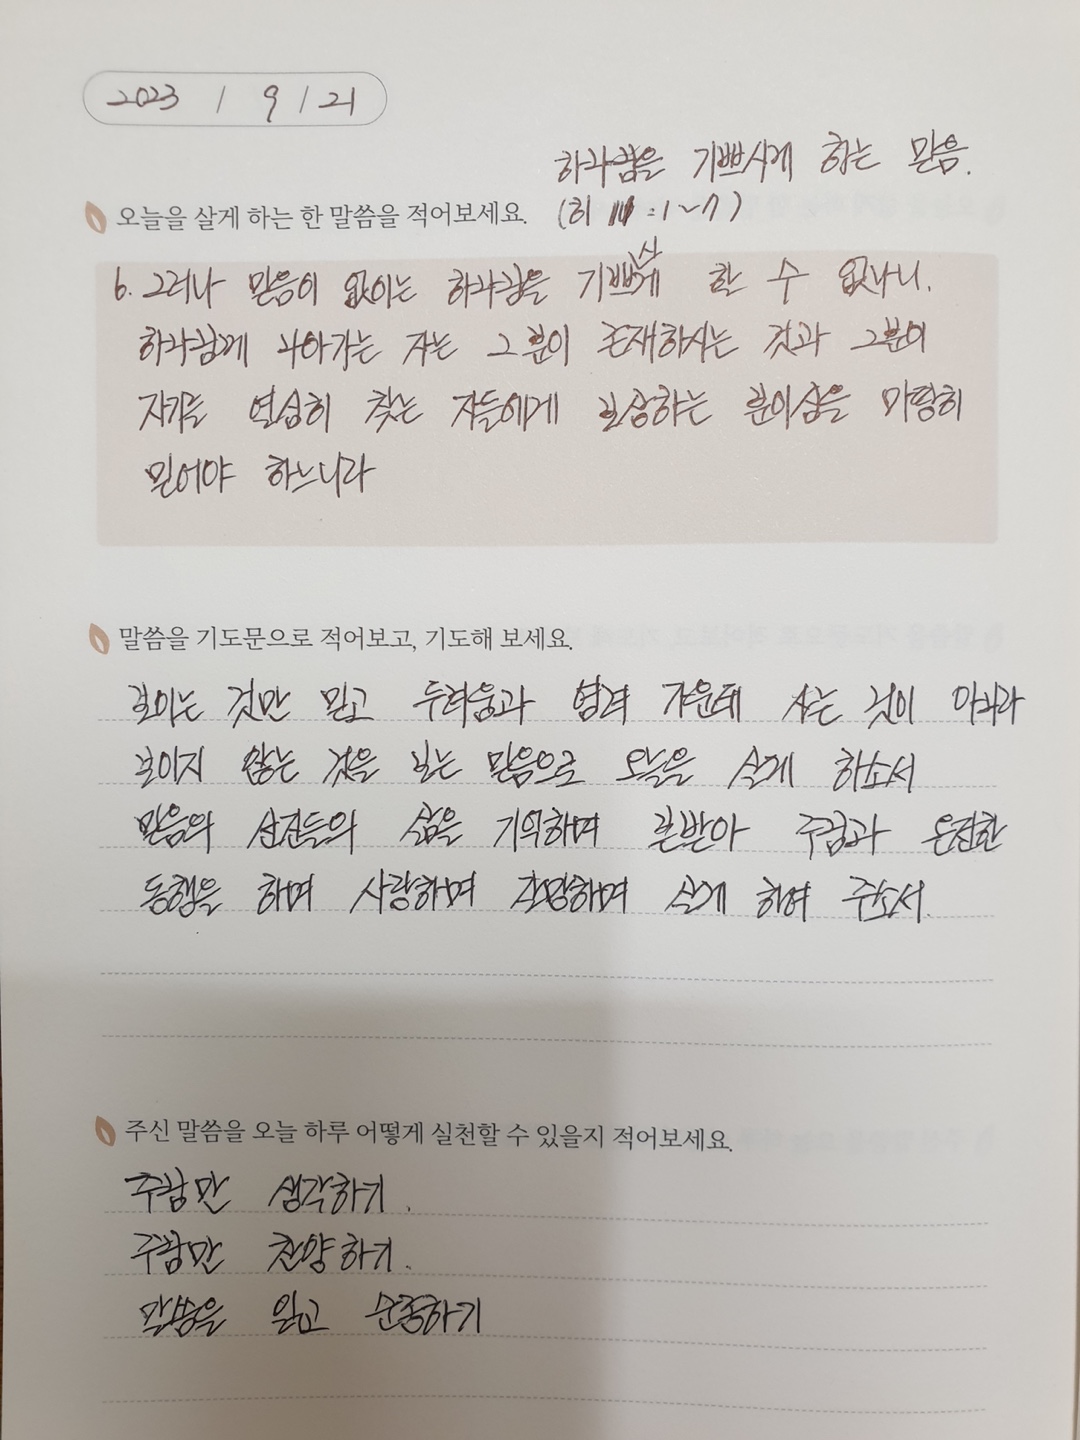 2023 / 9 / 21
하나님을 기쁘시게 하는 믿음.
오늘을 살게 하는 한 말씀을 적어보세요.
(히 11:1~7)
6. 그러나 믿음이 없이는 하나님을 기쁘시게 할 수 없나니.
하나님께 나아가는 자는 그분이 존재하시는 것과 그분이
자기를 열심히 찾는 자들에게 보상하는 분이심을 마땅히
믿어야 하느니라
말씀을 기도문으로 적어보고, 기도해 보세요.
보이는 것만 믿고 두려움과 염려 가운데 사는 것이 아니라
보이지 않는 것을 보는 믿음으로 오늘을 살게 하소서
믿음의 선진들의 삶을 기억하며 본받아 주님과 온전한
동행을 하며 사랑하며 갈망하며 살게 하여 주소서.
주신 말씀을 오늘 하루 어떻게 실천할 수 있을지 적어보세요.
주님만 생각하기.
주님만 찬양하기.
말씀을 읽고 순종하기